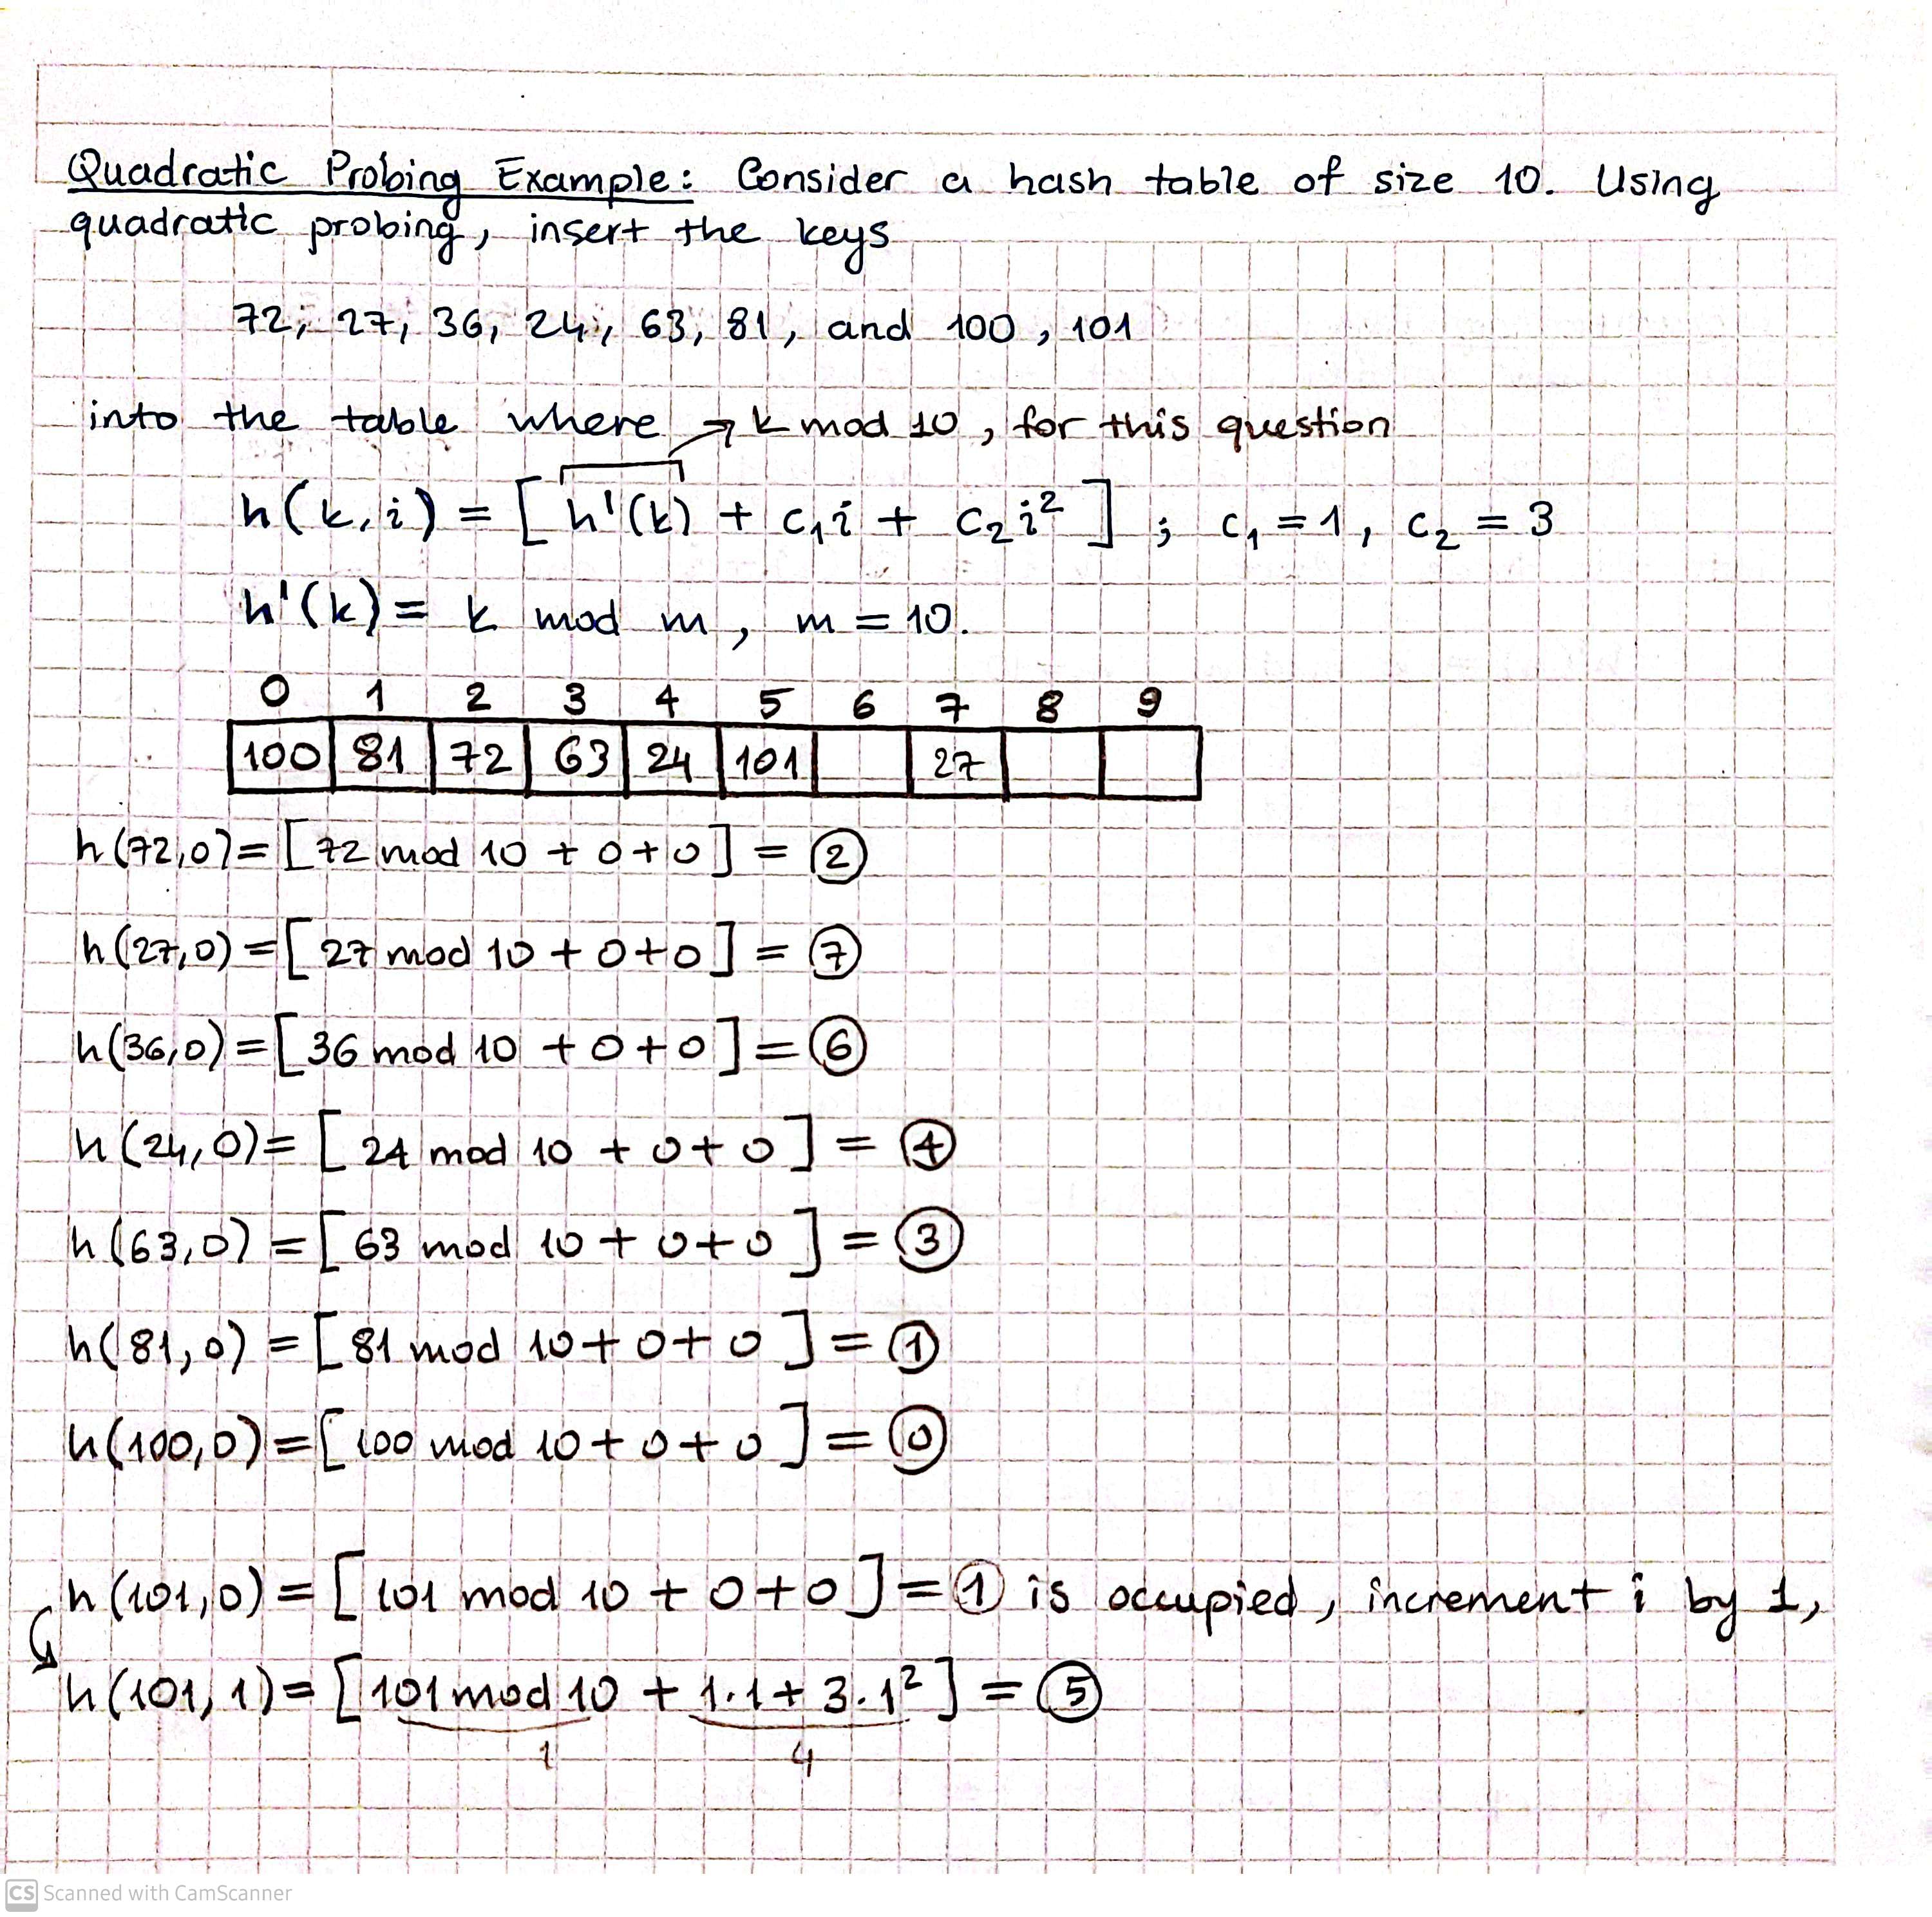 Quadratic Probing Example: Consider a hash table of size 10. Using
quadratic probing, insert the keys
72, 27, 36, 24, 63, 81, and 100, 101
into the table where → k mod 10, for this question
h(k,i) = [h'(k) + c₁i + c₂i²] ; c₁ = 1, c₂ = 3
h'(k) = k mod m, m = 10.
0 1 2 3 4 5 6 7 8 9
100 81 72 63 24 101 27
h(72,0) = [72 mod 10 + 0 + 0] = 2
h(27,0) = [27 mod 10 + 0 + 0] = 7
h(36,0) = [36 mod 10 + 0 + 0] = 6
h(24,0) = [24 mod 10 + 0 + 0] = 4
h(63,0) = [63 mod 10 + 0 + 0] = 3
h(81,0) = [81 mod 10 + 0 + 0] = 1
h(100,0) = [100 mod 10 + 0 + 0] = 0
h(101,0) = [101 mod 10 + 0 + 0] = 1 is occupied, increment i by 1,
h(101,1) = [101 mod 10 + 1.1 + 3.1²] = 5
1 4
CS Scanned with CamScanner